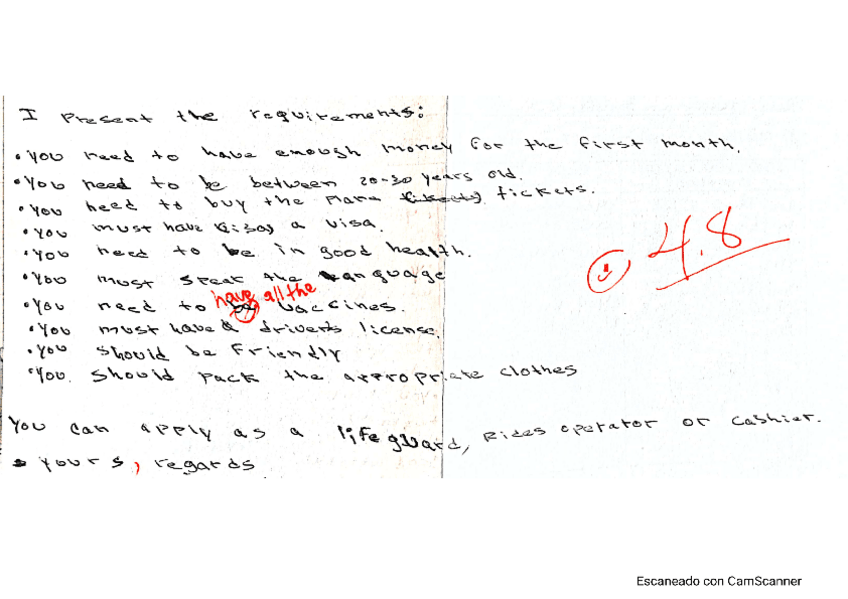 I Present the requirements:
• You need to have enough money for the first month.
• You need to be between 20-30 years old.
• You need to buy the Plane tickets.
• You must have a visa.
• You need to be in good health.
• You must speak the language
have all the
• You need to vaccines.
• You must have a driver's license.
• You should be Friendly
• You should pack the appropriate clothes
4.8
You can apply as a lifeguard, Rides operator or cashier.
• yours, regards
Escaneado con CamScanner